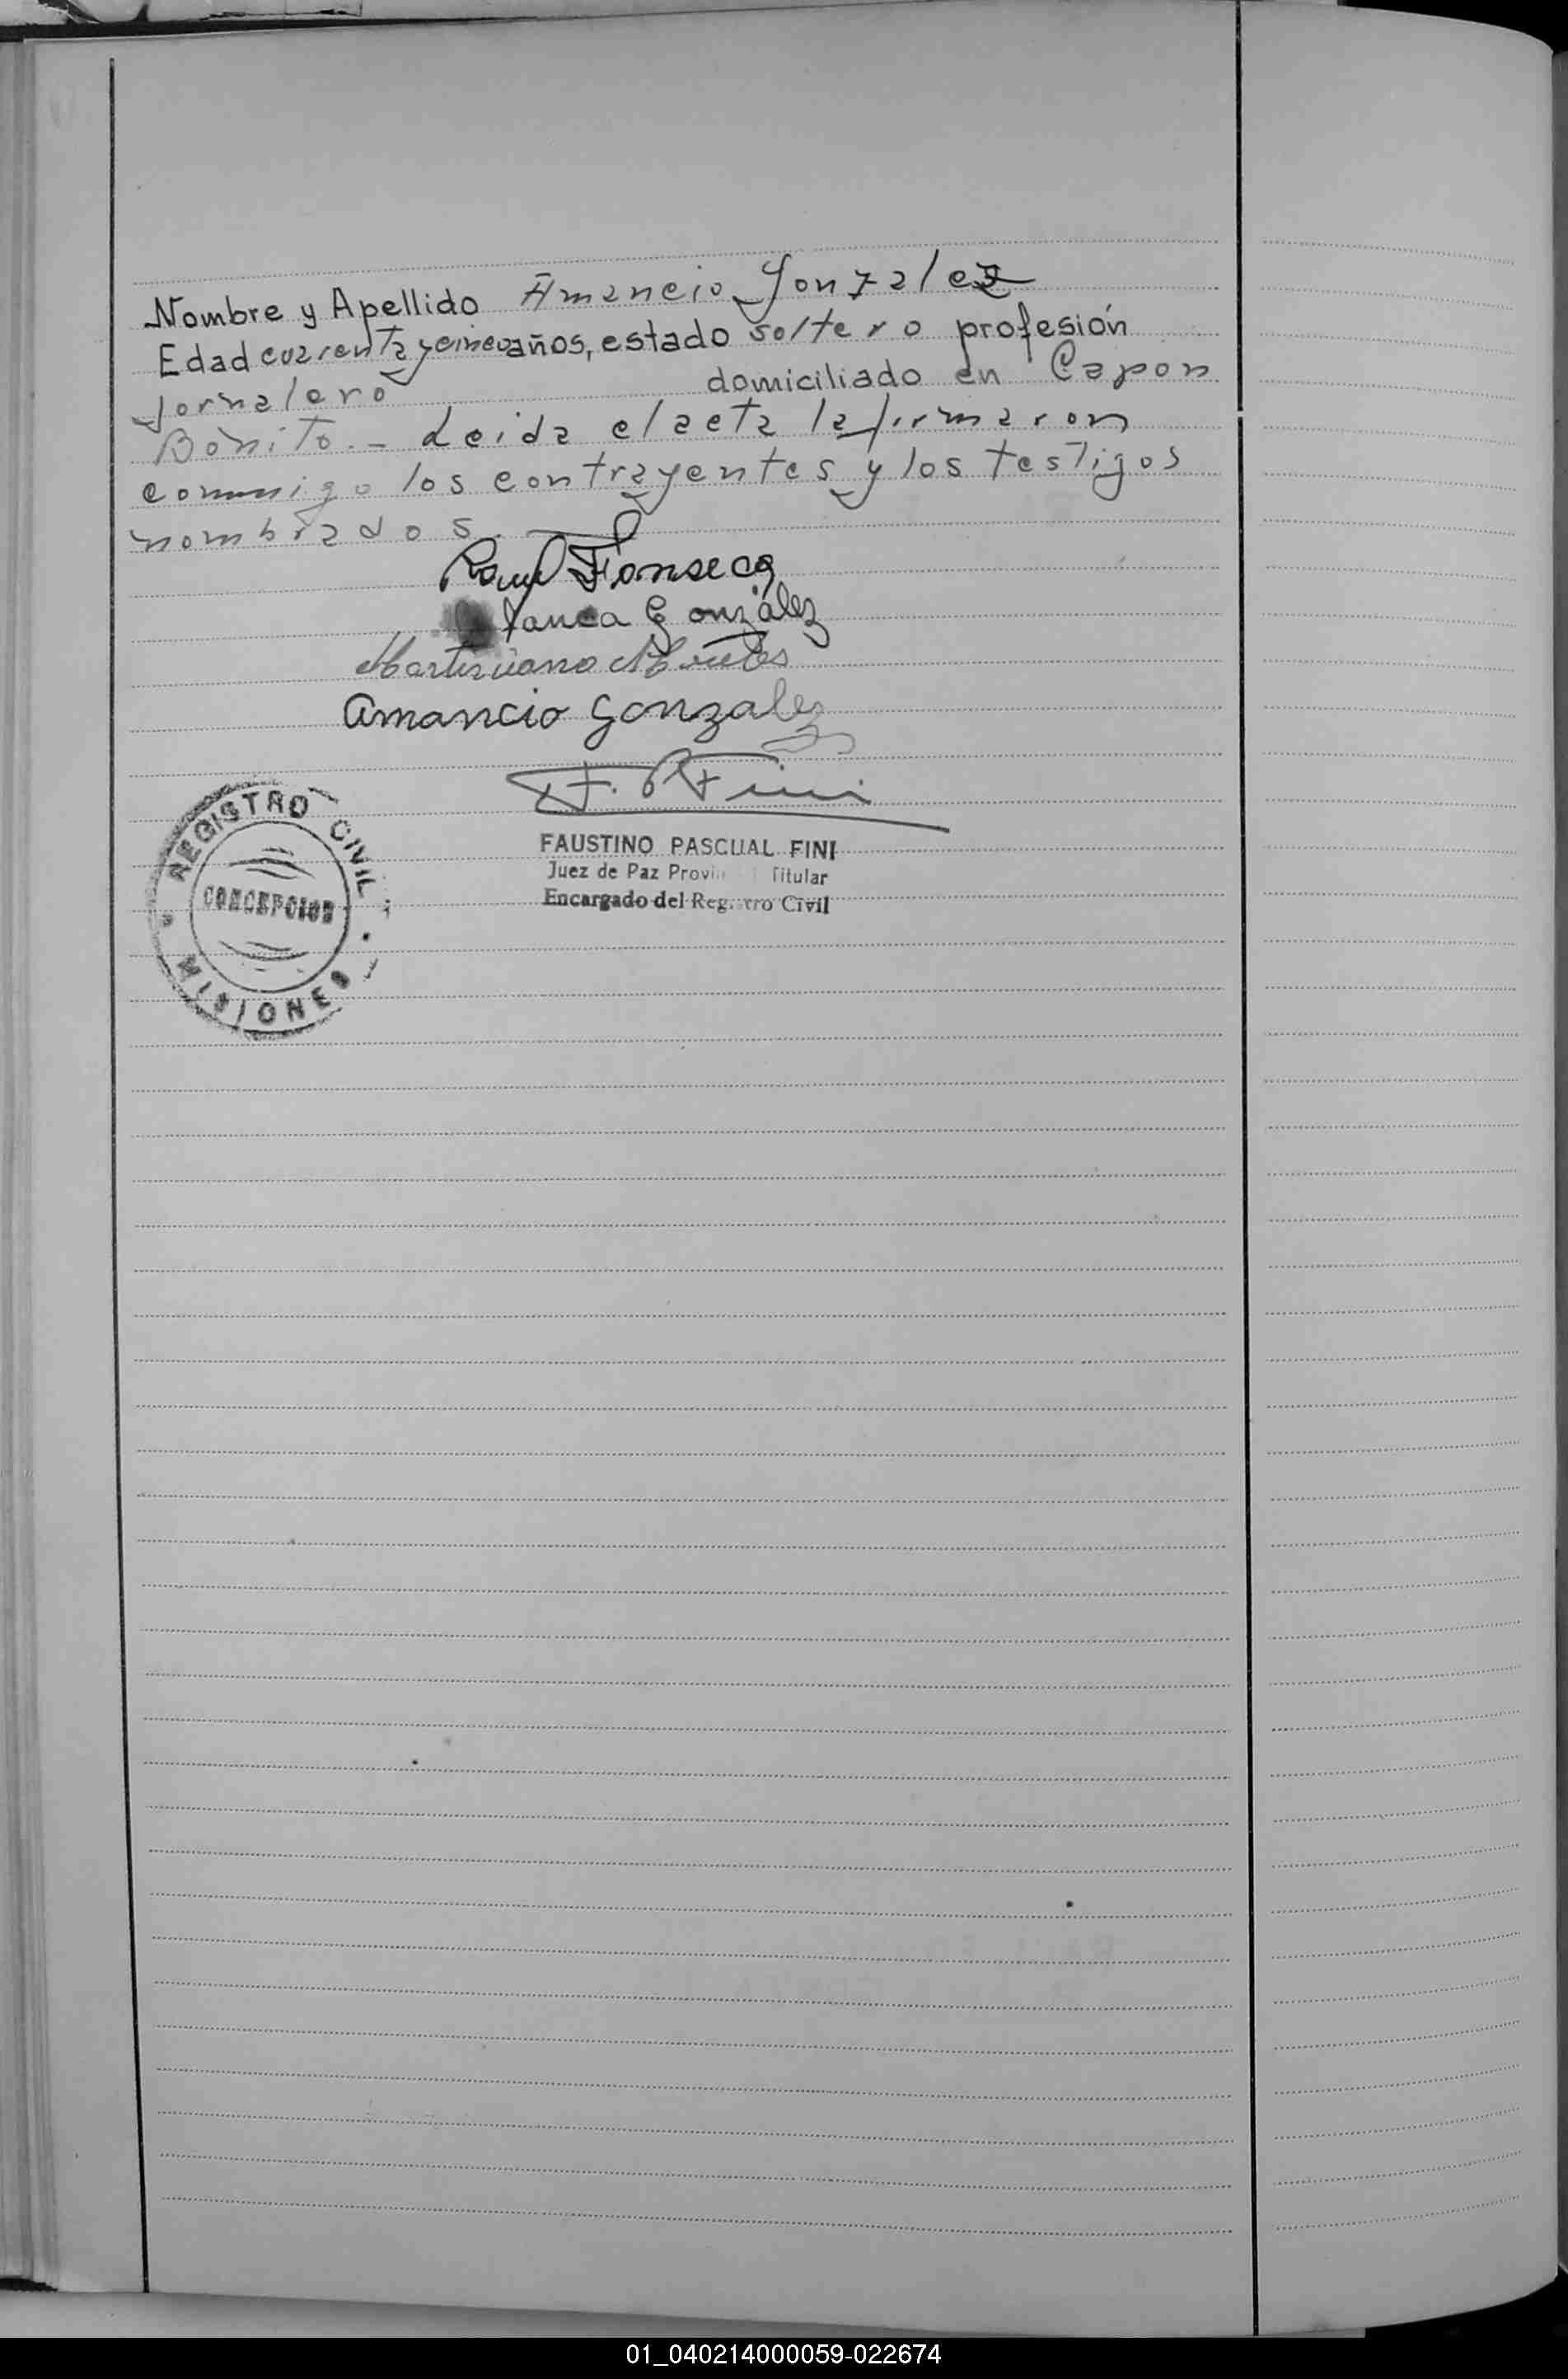 Nombre y Apellido Amancio Gonzalez
Edad cuarenta y cinco años, estado soltero profesión
Jornalero domiciliado en Capon
Bonito.- Leida el acta la firmaron
conmigo los contrayentes y los testigos
nombrados.
Raul Fonseca
Blanca González
Amancio Gonzalez
F. P. Fini
FAUSTINO PASCUAL FINI
Juez de Paz Titular
Encargado del Registro Civil
REGISTRO CIVIL
CONCEPCION
MISIONES
01_040214000059-022674